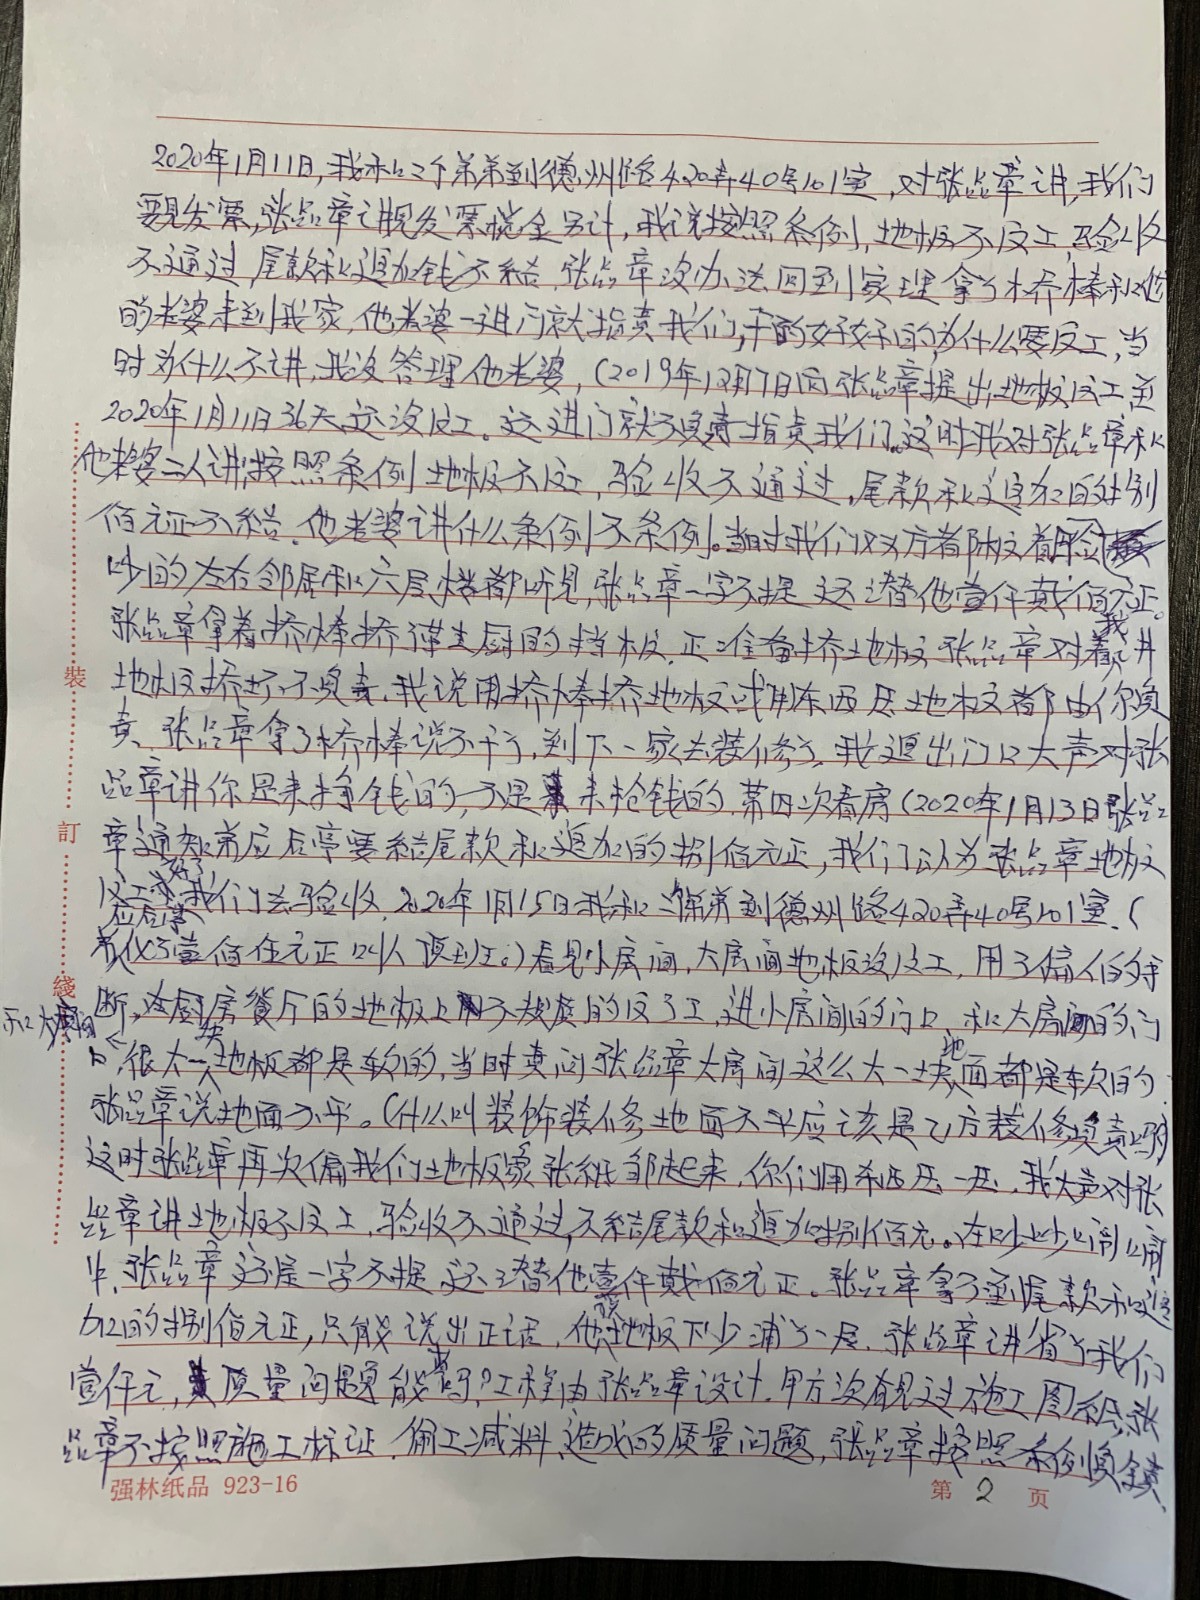 2020年1月11日,我和二个弟弟到德州路420弄40号101室,对张品章讲,我们
要见发票,张品章讲见发票税金另计,我说按照条例,地板不反工,验收
不通过,尾款和追加钱不结,张品章没办法回到家理拿了木桥棒和他
的老婆来到我家,他老婆一进门就指责我们,干的好好的为什么要反工,当
时为什么不讲,我没答理他老婆,(2019年12月7日向张品章提出地板反工至
2020年1月11日36天还没反工。这进门就不负责指责我们。这时我对张品章和
他老婆二人讲,按照条例地板不反工,验收不通过,尾款和追加的捌
佰元正不结,他老婆讲什么条例不条例。当时我们双方都
吵的左右邻居和六层楼都听见,张品章一字不提还之替他壹仟贰佰元正。
张品章拿着桥棒桥厨的挡板,正准备桥地板张品章对着我讲
地板桥坏不负责,我说用桥棒桥地板或用东西压地板都由你负
责,张品章拿了桥棒说不干了,到下一家去装修了,我追出门口大声对张
品章讲你是来挣钱的,不是来抢钱的,第四次看房(2020年1月13日张品
章通知弟应后亭要结尾款和追加的捌佰元正,我们认为张品章地板
反工好了我们去验收,2020年1月15日我和二个弟弟到德州路420弄40号101室,(
应后亭
弟化了壹佰伍元正叫人顶班。)看见小房间,大房间地板没反工,用了偏人的手
断,在厨房餐厅的地板上用不规矩的反了工,进小房间的门口,和大房间的门
口,很大一块地板都是软的,当时责问张品章大房间这么大一块地面都是软的
张品章说地面不平。(什么叫装饰装修地面不平应该是乙方装修负责吗
这时张品章再次偏我们地板象张纸邹起来,你们用东西压一压,我大声对张
品章讲地板不反工,验收不通过,不结尾款和追加捌佰元。在吵吵闹闹
中,张品章还是一字不提还之替他壹仟贰佰元正。张品章拿不到尾款和追
加的捌佰元正,只能说出正话,他地板下少浦了一层,张品章讲省了我们
壹仟元,质量问题能省吗?工程由张品章设计,甲方没有见过施工图纸,张
品章不按照施工标证,偷工减料造成的质量问题,张品章按照条例负全责,
裝
訂
綫
强林纸品 923-16
第 2 页